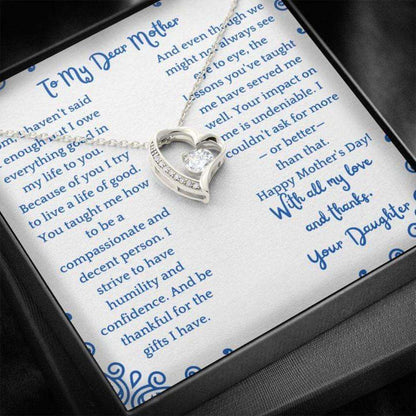 To My Dear Mother
I haven't said
enough, but I owe
everything good in
my life to you.
Because of you I try
to live a life of good.
You taught me how
to be a
compassionate and
decent person. I
strive to have
humility and
confidence. And be
thankful for the
gifts I have.
And even though we
might not always see
eye to eye, the
lessons you've taught
me have served me
well. Your impact on
me is undeniable. I
couldn't ask for more
— or better—
than that.
Happy Mother's Day!
With all my love
and thanks.
Your Daughter